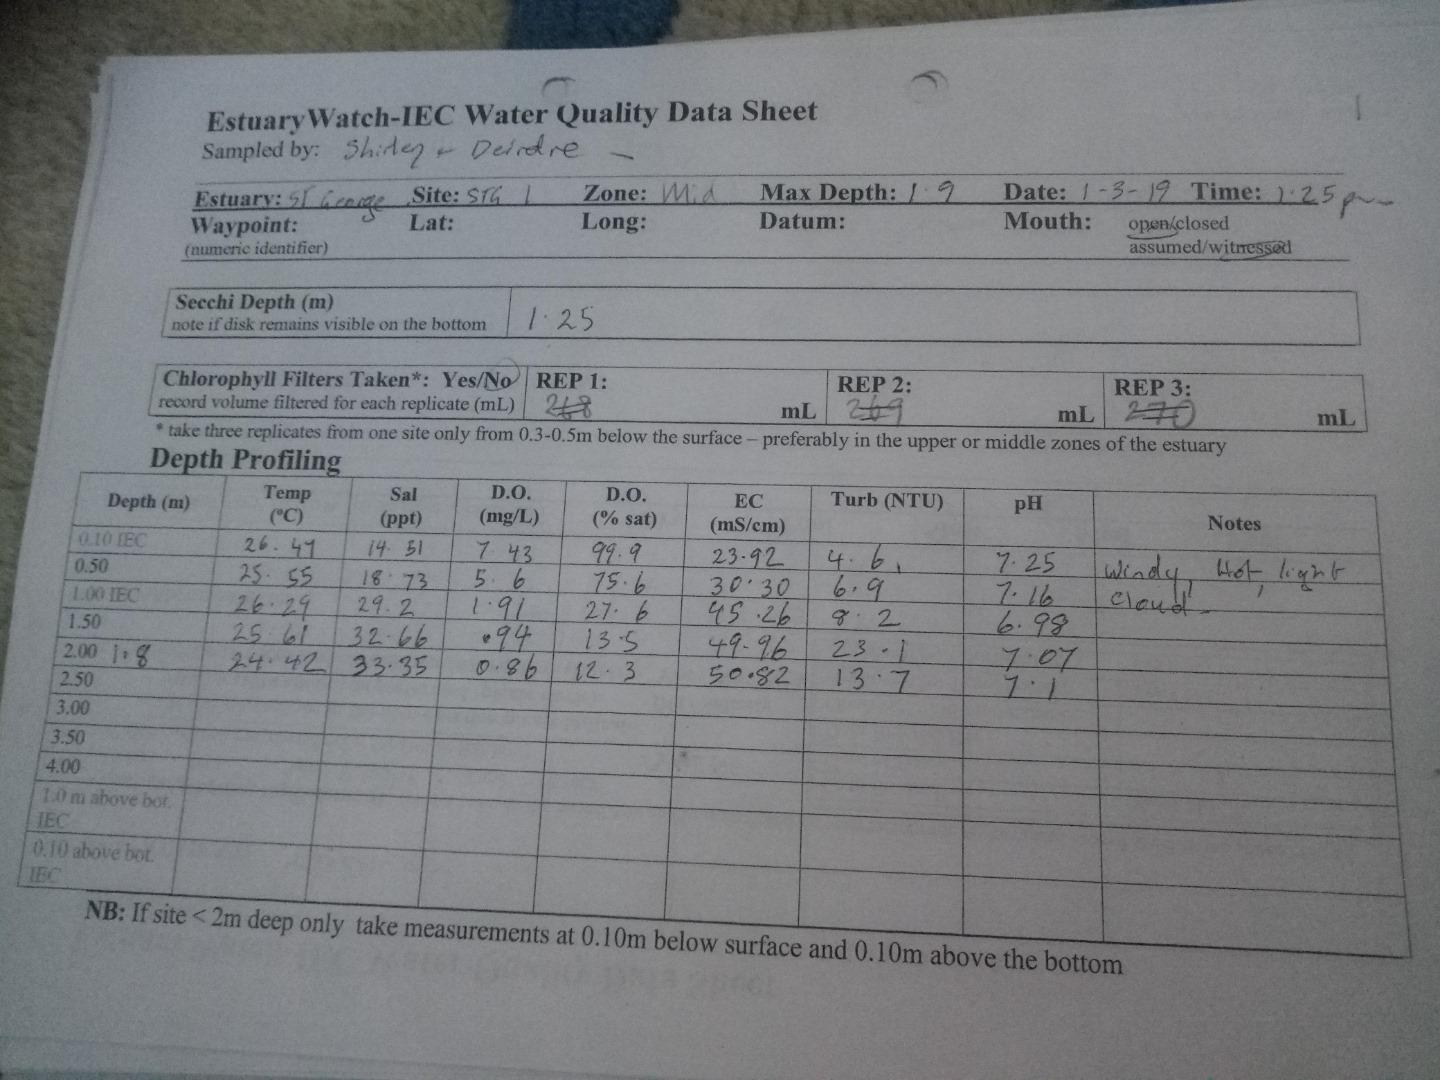 EstuaryWatch-IEC Water Quality Data Sheet
Sampled by: Shirley + Deirdre
Estuary: St George Site: STG 1 Zone: Mid Max Depth: 1.9 Date: 1-3-19 Time: 1.25pm
Waypoint: Lat: Long: Datum: Mouth: open/closed
(numeric identifier) assumed/witnessed
Secchi Depth (m)
note if disk remains visible on the bottom 1.25
Chlorophyll Filters Taken*: Yes/No REP 1: REP 2: REP 3:
record volume filtered for each replicate (mL) 268 mL 269 mL 270 mL
* take three replicates from one site only from 0.3-0.5m below the surface – preferably in the upper or middle zones of the estuary
Depth Profiling
Depth (m) Temp (°C) Sal (ppt) D.O. (mg/L) D.O. (% sat) EC (mS/cm) Turb (NTU) pH Notes
0.10 IEC 26.47 14.51 7.43 99.9 23.92 4.6 7.25 Windy, Hot, light
0.50 25.55 18.73 5.6 75.6 30.30 6.9 7.16 cloud
1.00 IEC 26.29 29.2 1.91 27.6 45.26 8.2 6.98
1.50 25.61 32.66 .94 13.5 49.96 23.1 7.07
2.00 1.8 24.42 33.35 0.86 12.3 50.82 13.7 7.1
2.50
3.00
3.50
4.00
1.0 m above bot.
IEC
0.10 above bot.
IEC
NB: If site < 2m deep only take measurements at 0.10m below surface and 0.10m above the bottom